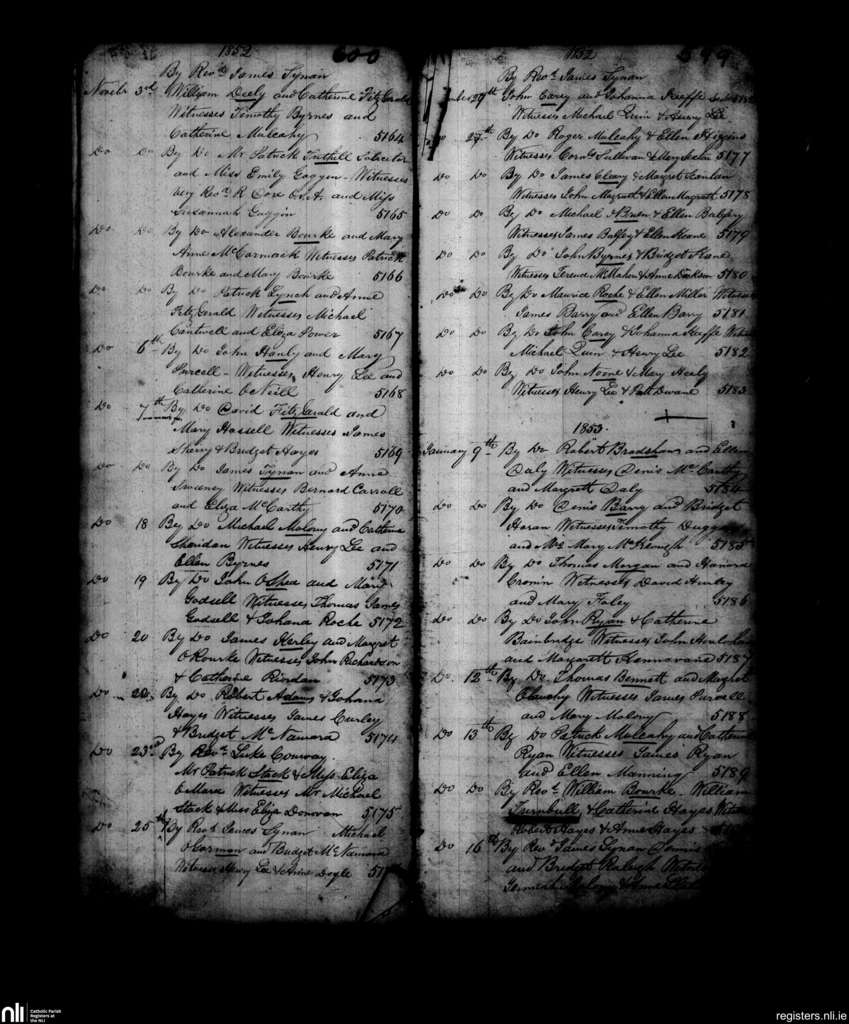 1852 600
By Revd James Synan
Novebr 5th William Deely and Catherine FitzGerald
Witnesses Timothy Byrnes and
Catherine Muleahy 5164
Do Do By Do Mr Patrick Tuthill Solicitor
and Miss Emily Goggin - Witnesses
Very Revd R Coxe and Miss
Susannah Goggin 5165
Do Do By Do Alexander Bourke and Mary
Anne McCormack Witnesses Patrick
Bourke and Mary Bourke 5166
Do Do By Do Patrick Lynch and Anne
FitzGerald Witnesses Michael
Cantwell and Eliza Power 5167
Do 6th By Do John Hanly and Mary
Purcell - Witnesses Henry Lee and
Catherine ONeill 5168
Do 7th By Do David FitzGerald and
Mary Hassell Witnesses James
Sherry & Bridget Hayes 5169
Do Do By Do James Tynan and Anne
Sweeney Witnesses Bernard Carroll
and Eliza McCarthy 5170
Do 18 By Do Michael Malony and Catherine
Sheridan Witnesses Henry Lee and
Ellen Byrnes 5171
Do 19 By Do John OShea and Maria
Godsell Witnesses Thomas James
Godsell & Johana Roche 5172
Do 20 By Do James Harley and Margret
ORourke Witnesses John Richardson
& Catherine Riordan 5173
Do 22 By Do Robert Adams & Johana
Hayes Witnesses James Curley
& Bridget McNamara 5174
Do 23rd By Revd Luke Conway
Mr Patrick Stack & Miss Eliza
OMara Witnesses Mr Michael
Stack & Miss Eliza Donovan 5175
Do 25th By Revd James Synan Michael
OGorman and Bridget McNamara
Witnesses Henry Lee & Anne Doyle 51
1852 599
By Revd James Synan
29th John Carey and Johanna Keeffe
Witnesses Michael Quin & Henry Lee
Do 27th By Do Roger Muleahy & Ellen Higgins
Witnesses Corns Sullivan & Mary 5177
Do Do By Do James Cleary & Margret Scanlan
Witnesses John Magrath & Ellen Magrath 5178
Do Do By Do Michael & Ellen Balfry
Witnesses James Balfry & Ellen Keane 5179
Do Do By Do John Byrnes & Bridget Keane
Witnesses Terence McMahon & Anne Dickson 5180
Do Do By Do Maurice Roche & Ellen Miller Witnesses
James Barry and Ellen Barry 5181
Do Do By Do John Carey & Johanna Keeffe Witnesses
Michael Quin & Henry Lee 5182
Do Do By Do John Noone & Mary Healy
Witnesses Henry Lee & Patt Dwane 5183
1853
January 9th By Do Robert Bradshaw and Ellen
Daly Witnesses Denis McCarthy
and Margrett Daly 5184
Do Do By Do Denis Barry and Bridget
Horan Witnesses Timothy Duggan
and Mrs Mary McKeough 5185
Do Do By Do Thomas Morgan and Hanora
Cronin Witnesses David Hurley
and Mary Foley 5186
Do Do By Do John Ryan & Catherine
Bainbridge Witnesses John
and Margarett Kennavane 5187
Do 12th By Do Thomas Bennett and Margret
Clanchy Witnesses James Purcell
and Mary Malony 5188
Do 13th By Do Patrick Muleahy and Catherine
Ryan Witnesses James Ryan
and Ellen Manning 5189
Do Do By Revd William Bourke William
Turnbull & Catherine Hayes Witnesses
Robert Hayes & Anne Hayes
Do 16th By Revd James Synan Dennis
and Bridget Raleigh
Jeremiah Malony & Anne
nli
Catholic Parish
Registers at
the NLI
registers.nli.ie